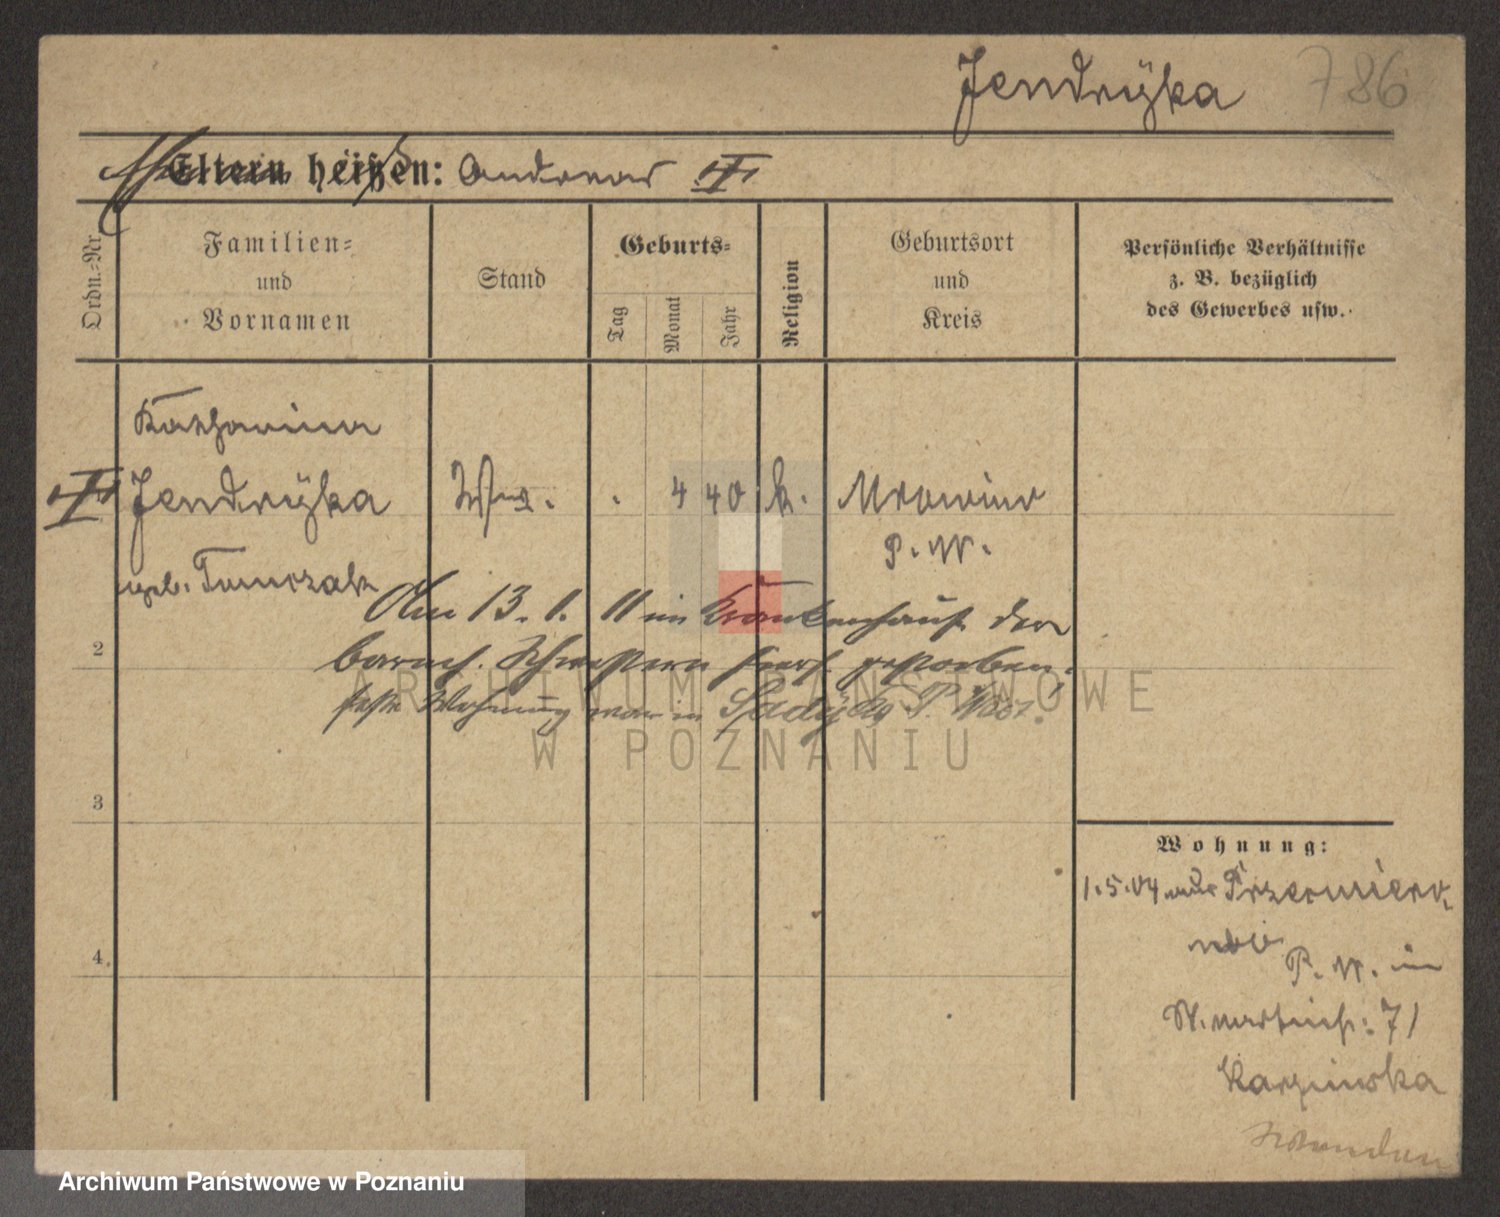 Jendrÿka 786
Eltern heißen: Andreas †
Ordn.-Nr.
Familien-
und
Vornamen
Stand
Geburts-
Tag
Monat
Jahr
Religion
Geburtsort
und
Kreis
Persönliche Verhältnisse
z. B. bezüglich
des Gewerbes usw.
Katharina
† Jendrÿka Ww. . 4 40 k. Mrowino
P. W.
geb. Tomczak
Am 13. 1. 11 im Krankenhaus der
barmh. Schwestern hiers. gestorben.
feste Wohnung war in Sady Kr. P. West.
2
3
4
ARCHIWUM PAŃSTWOWE
W POZNANIU
Wohnung:
1.5.04 aus
P. W. in
St. martinstr: 71
Karzinska
Archiwum Państwowe w Poznaniu